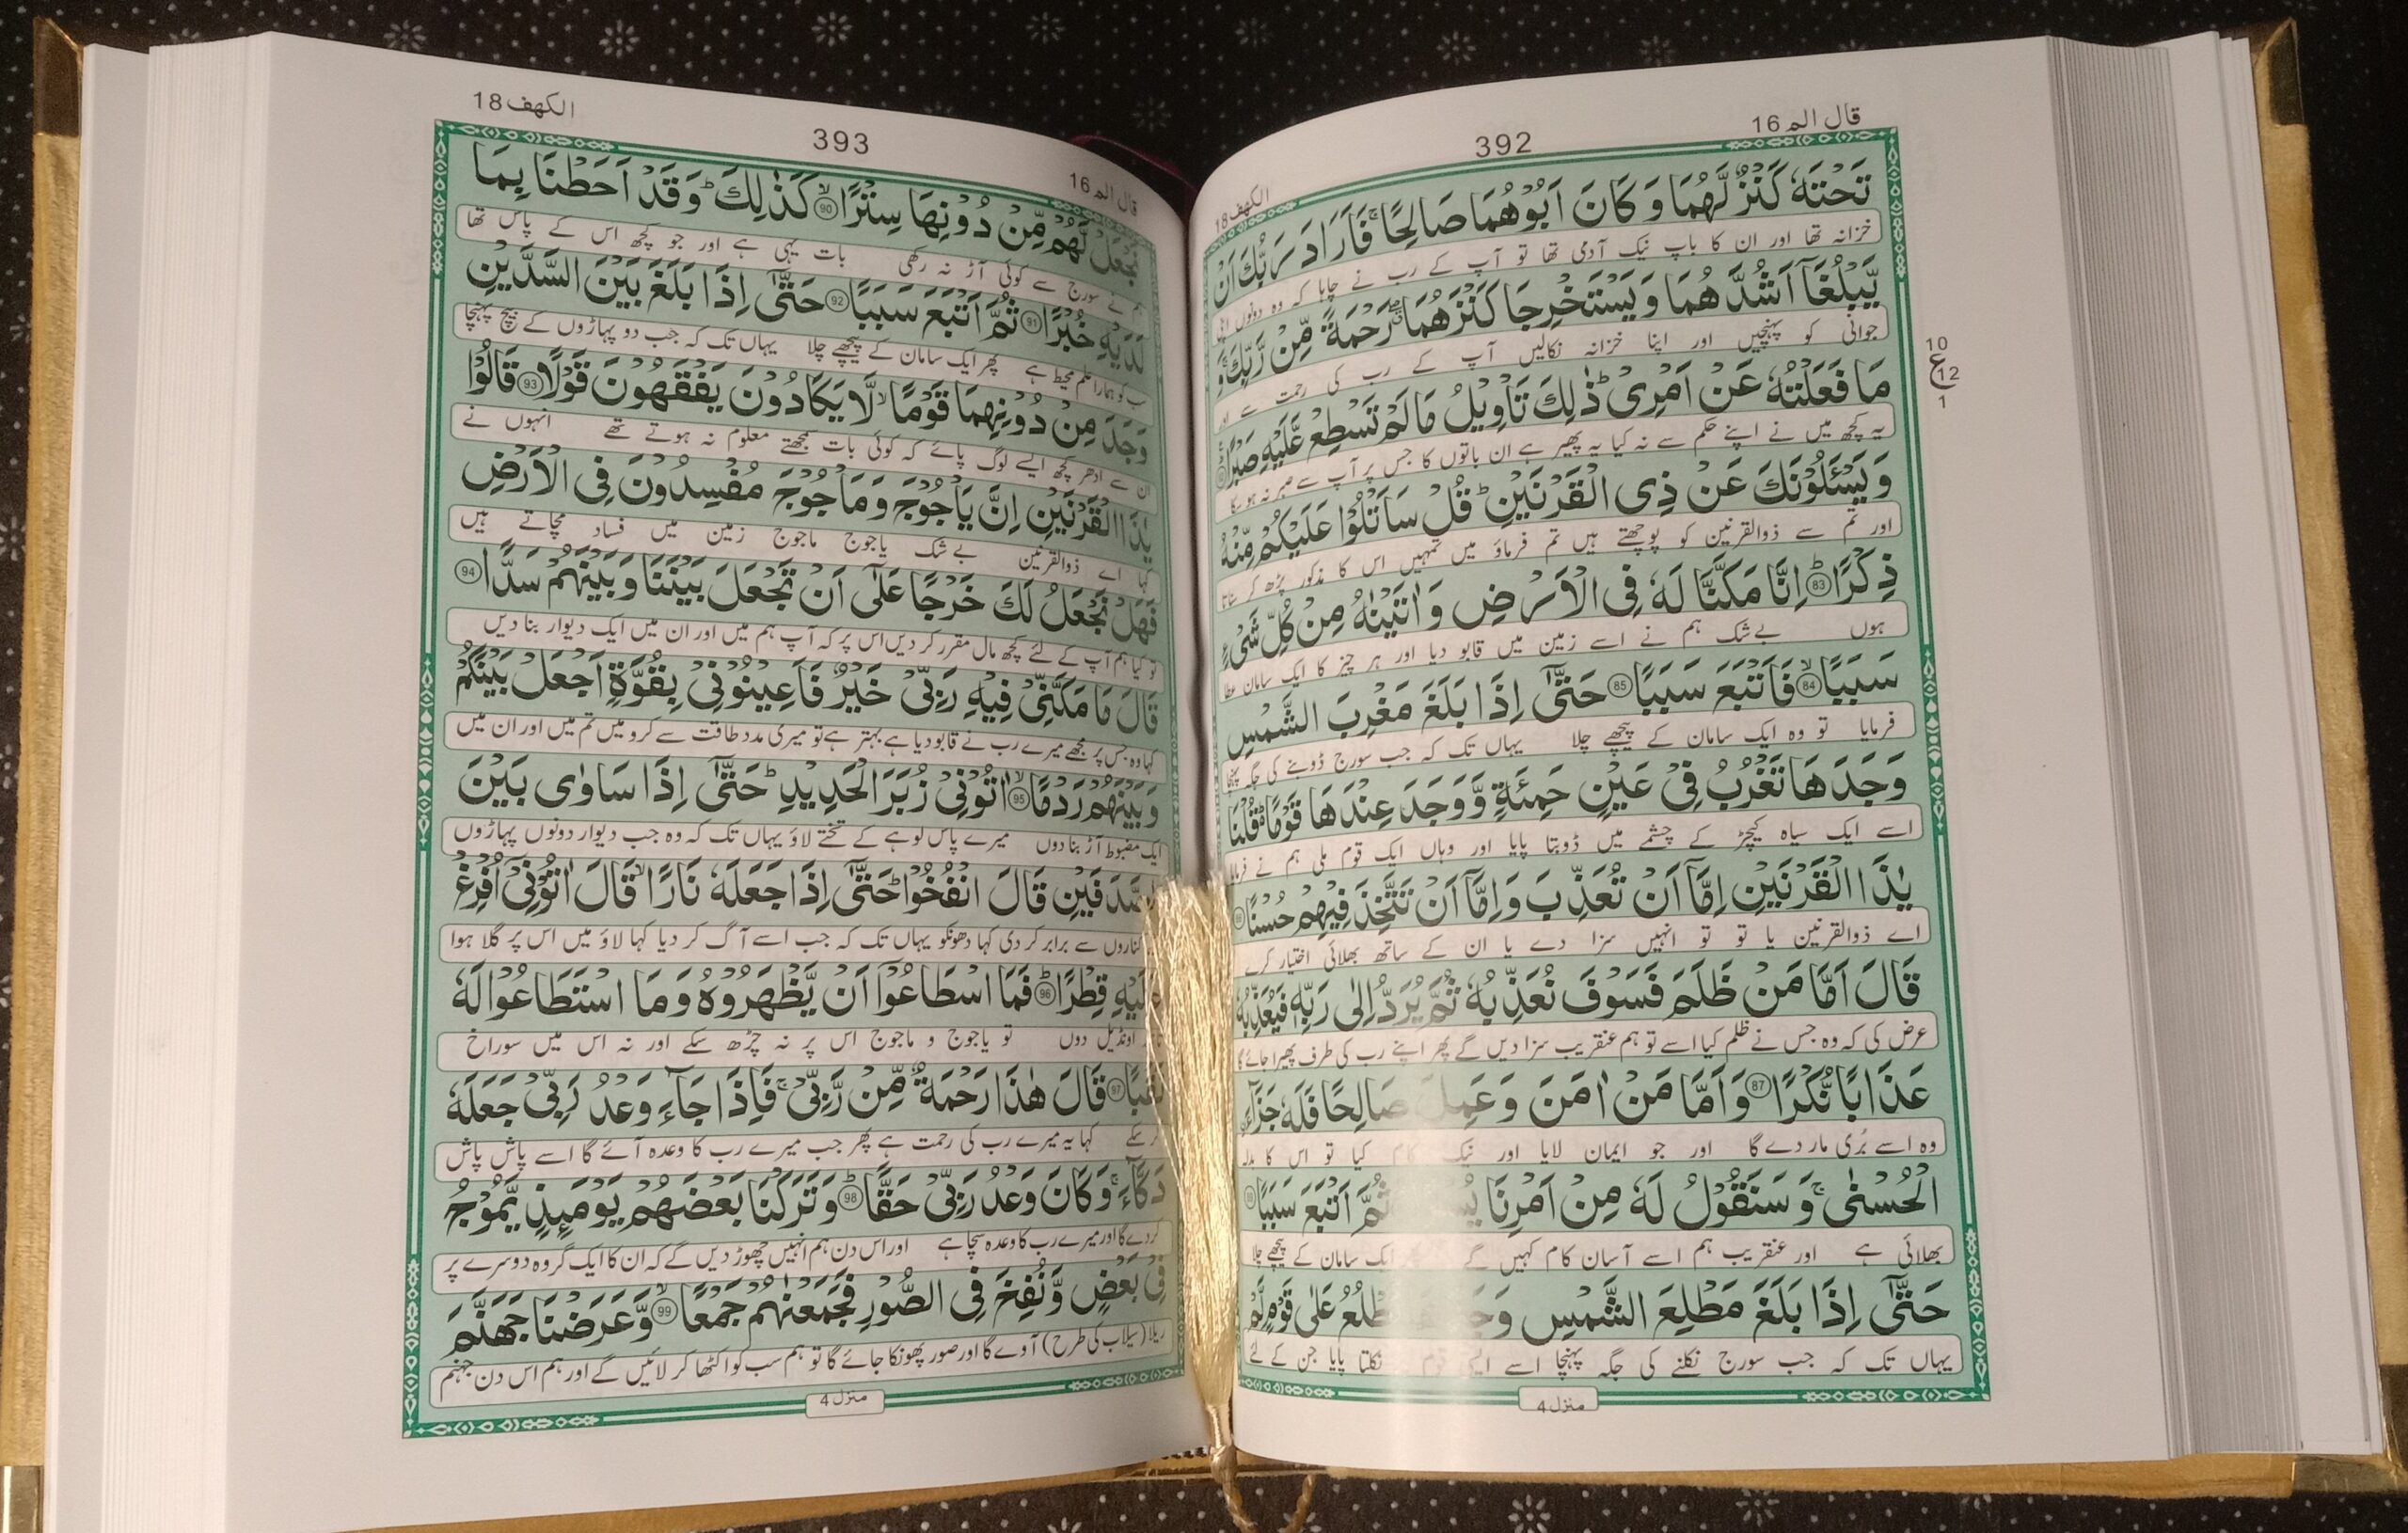 قال الم 16
392
الكهف 18
تَحْتَهٗ كَنْزٌ لَّهُمَا وَكَانَ اَبُوْهُمَا صَالِحًا ۚ فَاَرَادَ رَبُّكَ اَنْ
خزانہ تھا اور ان کا باپ نیک آدمی تھا تو آپ کے رب نے چاہا کہ وہ دونوں اپنی
یَّبْلُغَاۤ اَشُدَّهُمَا وَیَسْتَخْرِجَا كَنْزَهُمَا رَحْمَةً مِّنْ رَّبِّكَ ۚ وَ
جوانی کو پہنچیں اور اپنا خزانہ نکالیں آپ کے رب کی رحمت سے اور
10
ع
12
1
مَا فَعَلْتُهٗ عَنْ اَمْرِیْ ؕ ذٰلِكَ تَاْوِیْلُ مَا لَمْ تَسْطِعْ عَّلَیْهِ صَبْرًا
یہ کچھ میں نے اپنے حکم سے نہ کیا یہ پھیر ہے ان باتوں کا جس پر آپ سے صبر نہ ہوسکا
وَیَسْـَٔلُوْنَكَ عَنْ ذِی الْقَرْنَیْنِ ؕ قُلْ سَاَتْلُوْا عَلَیْكُمْ مِّنْهُ
اور تم سے ذوالقرنین کو پوچھتے ہیں تم فرماؤ میں تمہیں اس کا مذکور پڑھ کر سناتا
ذِكْرًا ؕ 83 اِنَّا مَكَّنَّا لَهٗ فِی الْاَرْضِ وَاٰتَیْنٰهُ مِنْ كُلِّ شَیْءٍ
ہوں بےشک ہم نے اسے زمین میں قابو دیا اور ہر چیز کا ایک سامان عطا
سَبَبًا ۙ 84 فَاَتْبَعَ سَبَبًا 85 حَتّٰۤی اِذَا بَلَغَ مَغْرِبَ الشَّمْسِ
فرمایا تو وہ ایک سامان کے پیچھے چلا یہاں تک کہ جب سورج ڈوبنے کی جگہ پہنچا
وَجَدَهَا تَغْرُبُ فِیْ عَیْنٍ حَمِئَةٍ وَّوَجَدَ عِنْدَهَا قَوْمًا ؕ قُلْنَا
اسے ایک سیاہ کیچڑ کے چشمے میں ڈوبتا پایا اور وہاں ایک قوم ملی ہم نے فرمایا
یٰذَا الْقَرْنَیْنِ اِمَّاۤ اَنْ تُعَذِّبَ وَاِمَّاۤ اَنْ تَتَّخِذَ فِیْهِمْ حُسْنًا
اے ذوالقرنین یا تو تو انہیں سزا دے یا ان کے ساتھ بھلائی اختیار کرے
قَالَ اَمَّا مَنْ ظَلَمَ فَسَوْفَ نُعَذِّبُهٗ ثُمَّ یُرَدُّ اِلٰی رَبِّهٖ فَیُعَذِّبُهٗ
عرض کی کہ وہ جس نے ظلم کیا اسے تو ہم عنقریب سزا دیں گے پھر اپنے رب کی طرف پھیرا جائے گا
عَذَابًا نُّكْرًا 87 وَاَمَّا مَنْ اٰمَنَ وَعَمِلَ صَالِحًا فَلَهٗ جَزَآءَ
وہ اسے بُری مار دے گا اور جو ایمان لایا اور نیک کام کیا تو اس کا بدلہ
الْحُسْنٰی ۚ وَسَنَقُوْلُ لَهٗ مِنْ اَمْرِنَا ثُمَّ اَتْبَعَ سَبَبًا
بھلائی ہے اور عنقریب ہم اسے آسان کام کہیں گے ایک سامان کے پیچھے چلا
حَتّٰۤی اِذَا بَلَغَ مَطْلِعَ الشَّمْسِ تَطْلُعُ عَلٰی قَوْمٍ لَّمْ
یہاں تک کہ جب سورج نکلنے کی جگہ پہنچا اسے ایسی قوم نکلتا پایا جن کے لئے
منزل 4
الكهف 18
393
قال الم 16
نَجْعَلْ لَّهُمْ مِّنْ دُوْنِهَا سِتْرًا ۙ 90 كَذٰلِكَ ؕ وَقَدْ اَحَطْنَا بِمَا
ہم نے سورج سے کوئی آڑ نہ رکھی بات یہی ہے اور جو کچھ اس کے پاس تھا
لَدَیْهِ خُبْرًا 91 ثُمَّ اَتْبَعَ سَبَبًا 92 حَتّٰۤی اِذَا بَلَغَ بَیْنَ السَّدَّیْنِ
سب کو ہمارا علم محیط ہے پھر ایک سامان کے پیچھے چلا یہاں تک کہ جب دو پہاڑوں کے بیچ پہنچا
وَجَدَ مِنْ دُوْنِهِمَا قَوْمًا ۙ لَّا یَكَادُوْنَ یَفْقَهُوْنَ قَوْلًا 93 قَالُوْا
ان سے ادھر کچھ ایسے لوگ پائے کہ کوئی بات سمجھتے معلوم نہ ہوتے تھے انہوں نے
یٰذَا الْقَرْنَیْنِ اِنَّ یَاْجُوْجَ وَمَاْجُوْجَ مُفْسِدُوْنَ فِی الْاَرْضِ
کہا اے ذوالقرنین بےشک یاجوج ماجوج زمین میں فساد مچاتے ہیں
فَهَلْ نَجْعَلُ لَكَ خَرْجًا عَلٰۤی اَنْ تَجْعَلَ بَیْنَنَا وَبَیْنَهُمْ سَدًّا 94
تو کیا ہم آپ کے لئے کچھ مال مقرر کر دیں اس پر کہ آپ ہم میں اور ان میں ایک دیوار بنا دیں
قَالَ مَا مَكَّنِّیْ فِیْهِ رَبِّیْ خَیْرٌ فَاَعِیْنُوْنِیْ بِقُوَّةٍ اَجْعَلْ بَیْنَكُمْ
کہا وہ جس پر مجھے میرے رب نے قابو دیا ہے بہتر ہے تو میری مدد طاقت سے کرو میں تم میں اور ان میں
وَبَیْنَهُمْ رَدْمًا ۙ 95 اٰتُوْنِیْ زُبَرَ الْحَدِیْدِ ؕ حَتّٰۤی اِذَا سَاوٰی بَیْنَ
ایک مضبوط آڑ بنا دوں میرے پاس لوہے کے تختے لاؤ یہاں تک کہ وہ جب دیوار دونوں پہاڑوں
الصَّدَفَیْنِ قَالَ انْفُخُوْا ؕ حَتّٰۤی اِذَا جَعَلَهٗ نَارًا ۙ قَالَ اٰتُوْنِیْۤ اُفْرِغْ
کناروں سے برابر کر دی کہا دھونکو یہاں تک کہ جب اسے آگ کر دیا کہا لاؤ میں اس پر گلا ہوا
عَلَیْهِ قِطْرًا ؕ 96 فَمَا اسْطَاعُوْۤا اَنْ یَّظْهَرُوْهُ وَمَا اسْتَطَاعُوْا لَهٗ
اونڈیل دوں تو یاجوج و ماجوج اس پر نہ چڑھ سکے اور نہ اس میں سوراخ
نَقْبًا 97 قَالَ هٰذَا رَحْمَةٌ مِّنْ رَّبِّیْ ۚ فَاِذَا جَآءَ وَعْدُ رَبِّیْ جَعَلَهٗ
کر سکے کہا یہ میرے رب کی رحمت ہے پھر جب میرے رب کا وعدہ آئے گا اسے پاش پاش
دَكَّآءَ ۚ وَكَانَ وَعْدُ رَبِّیْ حَقًّا ؕ 98 وَتَرَكْنَا بَعْضَهُمْ یَوْمَىِٕذٍ یَّمُوْجُ
کر دے گا اور میرے رب کا وعدہ سچا ہے اور اس دن ہم انہیں چھوڑ دیں گے کہ ان کا ایک گروہ دوسرے پر
فِیْ بَعْضٍ وَّنُفِخَ فِی الصُّوْرِ فَجَمَعْنٰهُمْ جَمْعًا ۙ 99 وَّعَرَضْنَا جَهَنَّمَ
ریلا (سیلاب کی طرح) آوے گا اور صور پھونکا جائے گا تو ہم سب کو اکٹھا کر لائیں گے اور ہم اس دن جہنم
منزل 4